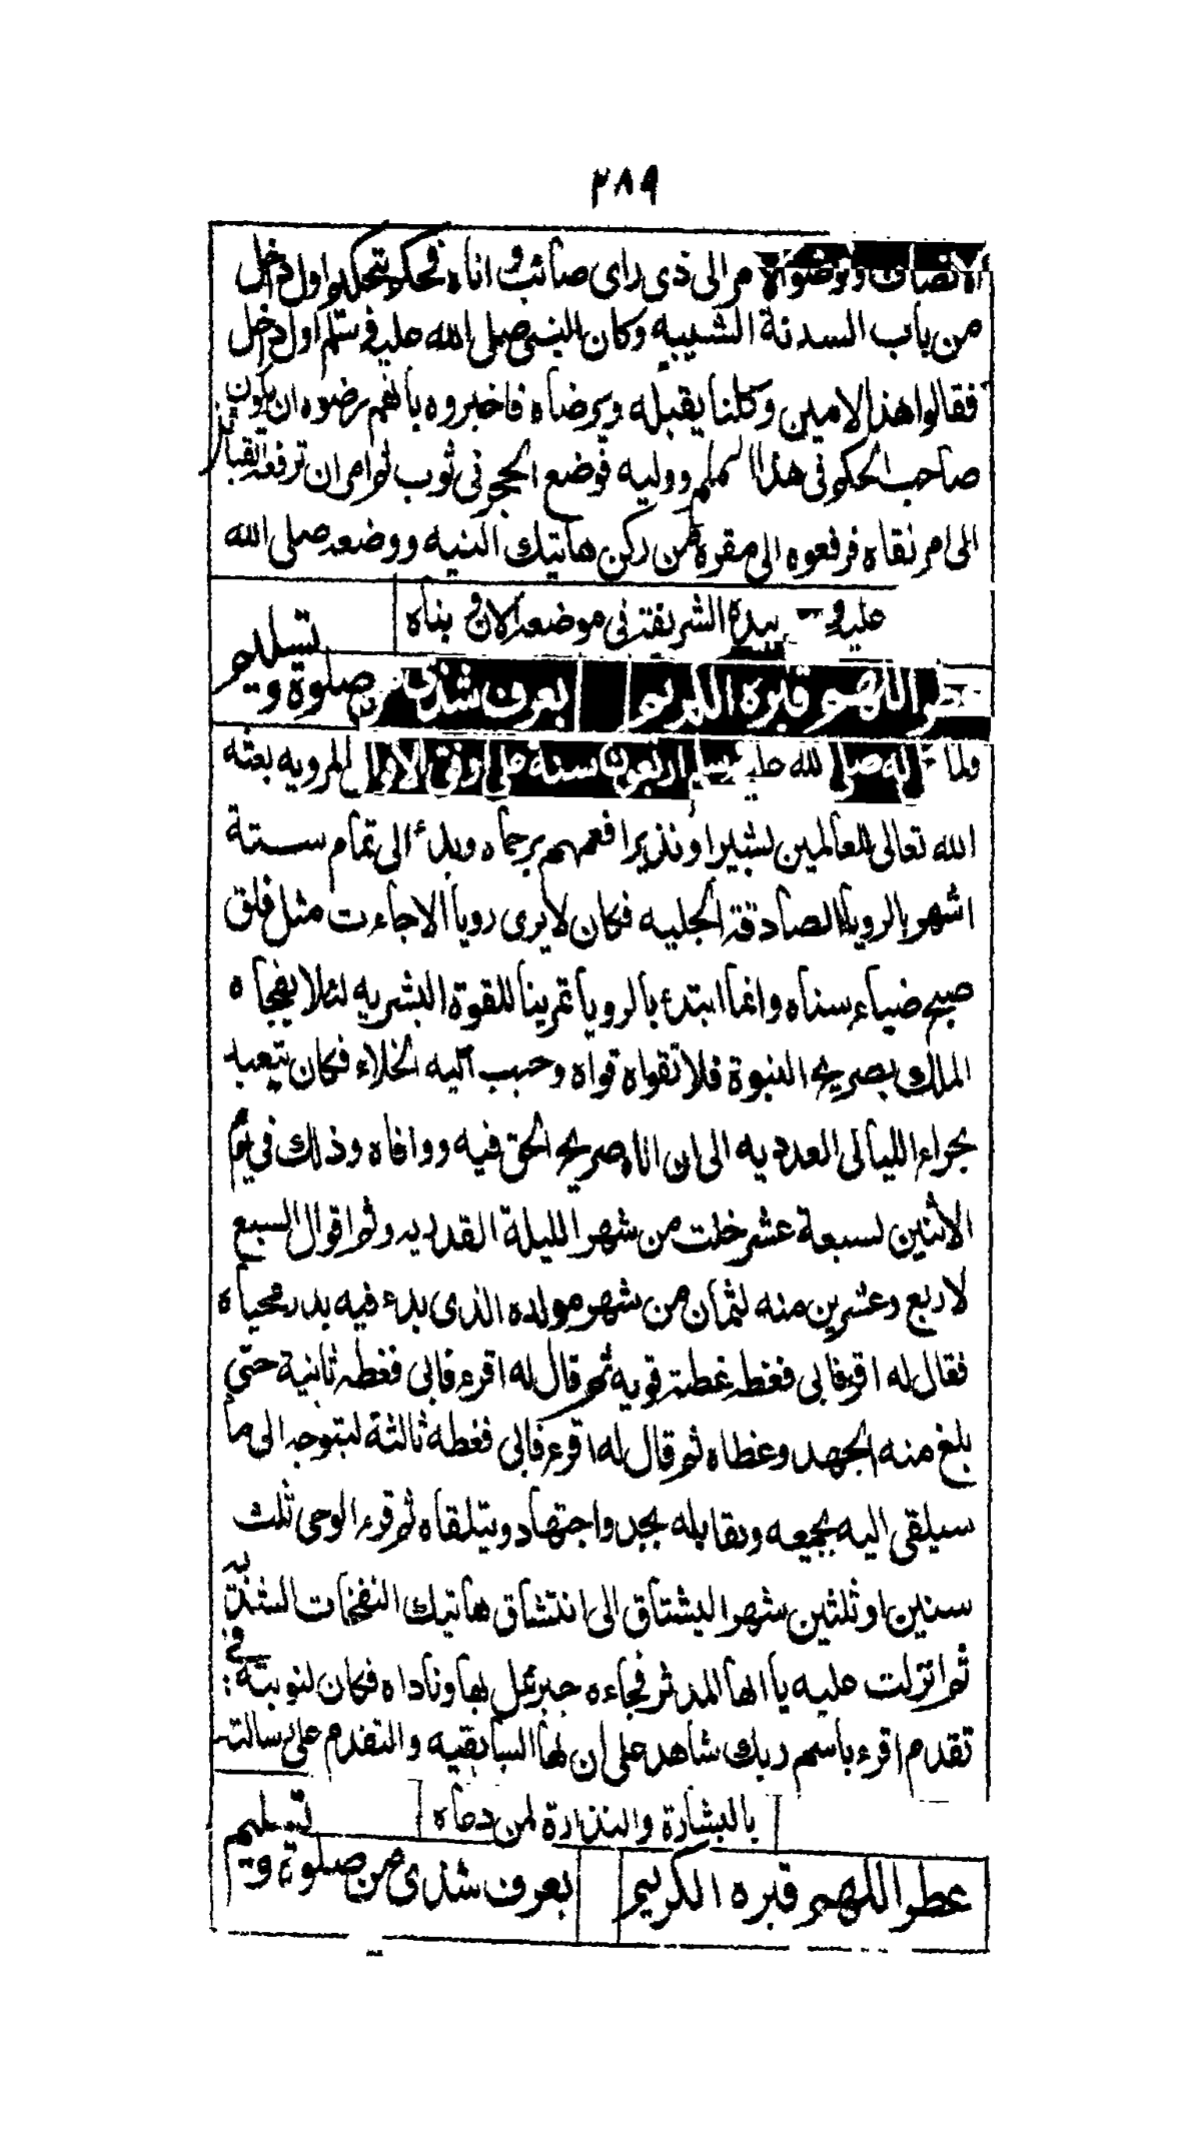 ٢٨٩
الانصاف وفوضوا الامر الى ذى راى صائب واناه فحكم بتحكيم اول داخل
من باب السدنة الشيبيه وكان النبى صلى الله عليه وسلم اول داخل
فقالوا هذا الامين وكلنا يقبله ويرضاه فاخبروه بانهم رضوه ان يكون
صاحب الحكم فى هذا الملم ووليه فوضع الحجر فى ثوب ثم امر ان ترفعه القبائل
الى مرتقاه فرفعوه الى مقره من ركن هاتيك البنيه ووضعه صلى الله
عليه بيده الشريفة فى موضعه الان وبناه
عطر اللهم قبره الكريم بعرف شذى من صلوة وتسليم
ولما له صلى الله عليه وسلم اربعون سنة على اوفق الاقوال المرويه بعثه
الله تعالى للعالمين بشيرا ونذيرا فعمهم برحماه وبدء الى تمام ستة
اشهر بالرويا الصادقة الجليه فكان لا يرى رويا الا جاءت مثل فلق
صبح ضياء سناه وانما ابتدئ بالرويا تمرينا للقوة البشريه لئلا يفجاه
الملك بصريح النبوة فلا تقواه قواه وحبب اليه الخلاء فكان يتعبد
بحراء الليالى العدديه الى ان اتاه صريح الحق فيه ووافاه وذلك فى يوم
الاثنين لسبعة عشر خلت من شهر الليلة القدريه وثم اقوال السبع
لاربع وعشرين منه لثمان من شهر مولده الذى بدء فيه بدر محياه
فقال له اقرء فابى فغطه غطة قويه ثم قال له اقرء فابى فغطه ثانية حتى
بلغ منه الجهد وغطاه ثم قال له اقرء فابى فغطه ثالثة ليتوجه الى ما
سيلقى اليه بجميعه ويقابله بجد واجتهاد ويتلقاه ثم فتر الوحى ثلث
سنين او ثلثين شهرا ليشتاق الى انتشاق هاتيك النفحات الشذيه
ثم انزلت عليه يا ايها المدثر فجاءه جبرئيل بها وناداه فكان لنبوته فى
تقدم اقرء باسم ربك شاهد على ان لها السابقيه والتقدم على رسالته
بالبشارة والنذارة لمن دعاه
عطر اللهم قبره الكريم بعرف شذى من صلوة وتسليم